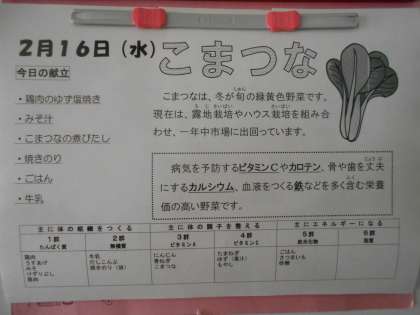 2月16日（水）こまつな
今日の献立
・鶏肉のゆず塩焼き
・みそ汁
・こまつなの煮びたし
・焼きのり
・ごはん
・牛乳
こまつなは、冬が旬の緑黄色野菜です。
現在は、露地栽培やハウス栽培を組み合
わせ、一年中市場に出回っています。
病気を予防するビタミンCやカロテン、骨や歯を丈夫
にするカルシウム、血液をつくる鉄などを多く含む栄養
価の高い野菜です。
主に体の組織をつくる 主に体の調子を整える 主にエネルギーになる
1群 2群 3群 4群 5群 6群
たんぱく質 無機質 ビタミンA ビタミンC 炭水化物 脂質
鶏肉 牛乳 にんじん たまねぎ ごはん
うすあげ だしこんぶ 青ねぎ ゆず（果汁） さつまいも
みそ 焼きのり（袋） こまつな もやし 砂糖
けずりぶし
鶏肉